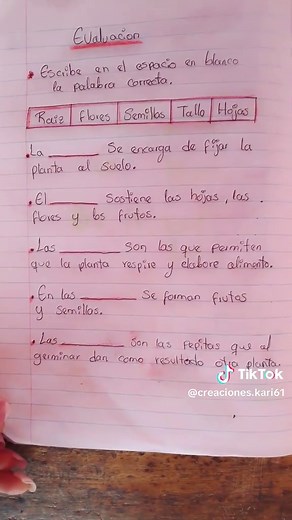 Evaluación
• Escribe en el espacio en blanco
la palabra correcta.
Raiz | Flores | Semillas | Tallo | Hojas
• La ________ Se encarga de fijar la
planta al suelo.
• El ________ Sostiene las hojas, las
flores y los frutos.
• Las ________ Son las que permiten
que la planta respire y elabore alimento.
• En las ________ Se forman frutos
y Semillas.
• Las ________ Son las pepitas que al
germinar dan como resultado otra planta.
TikTok
@creaciones.kari61